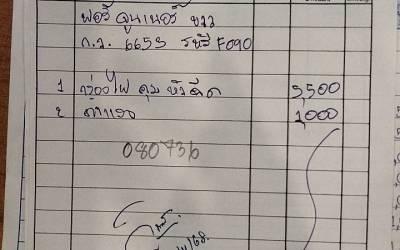 ฟอร์จูนเนอร์ ขาว
ก.ว. 6653 รหัส F090
1 กล่องไฟ คุม หัวฉีด 3,500
2 ค่าแรง 1,000
080736